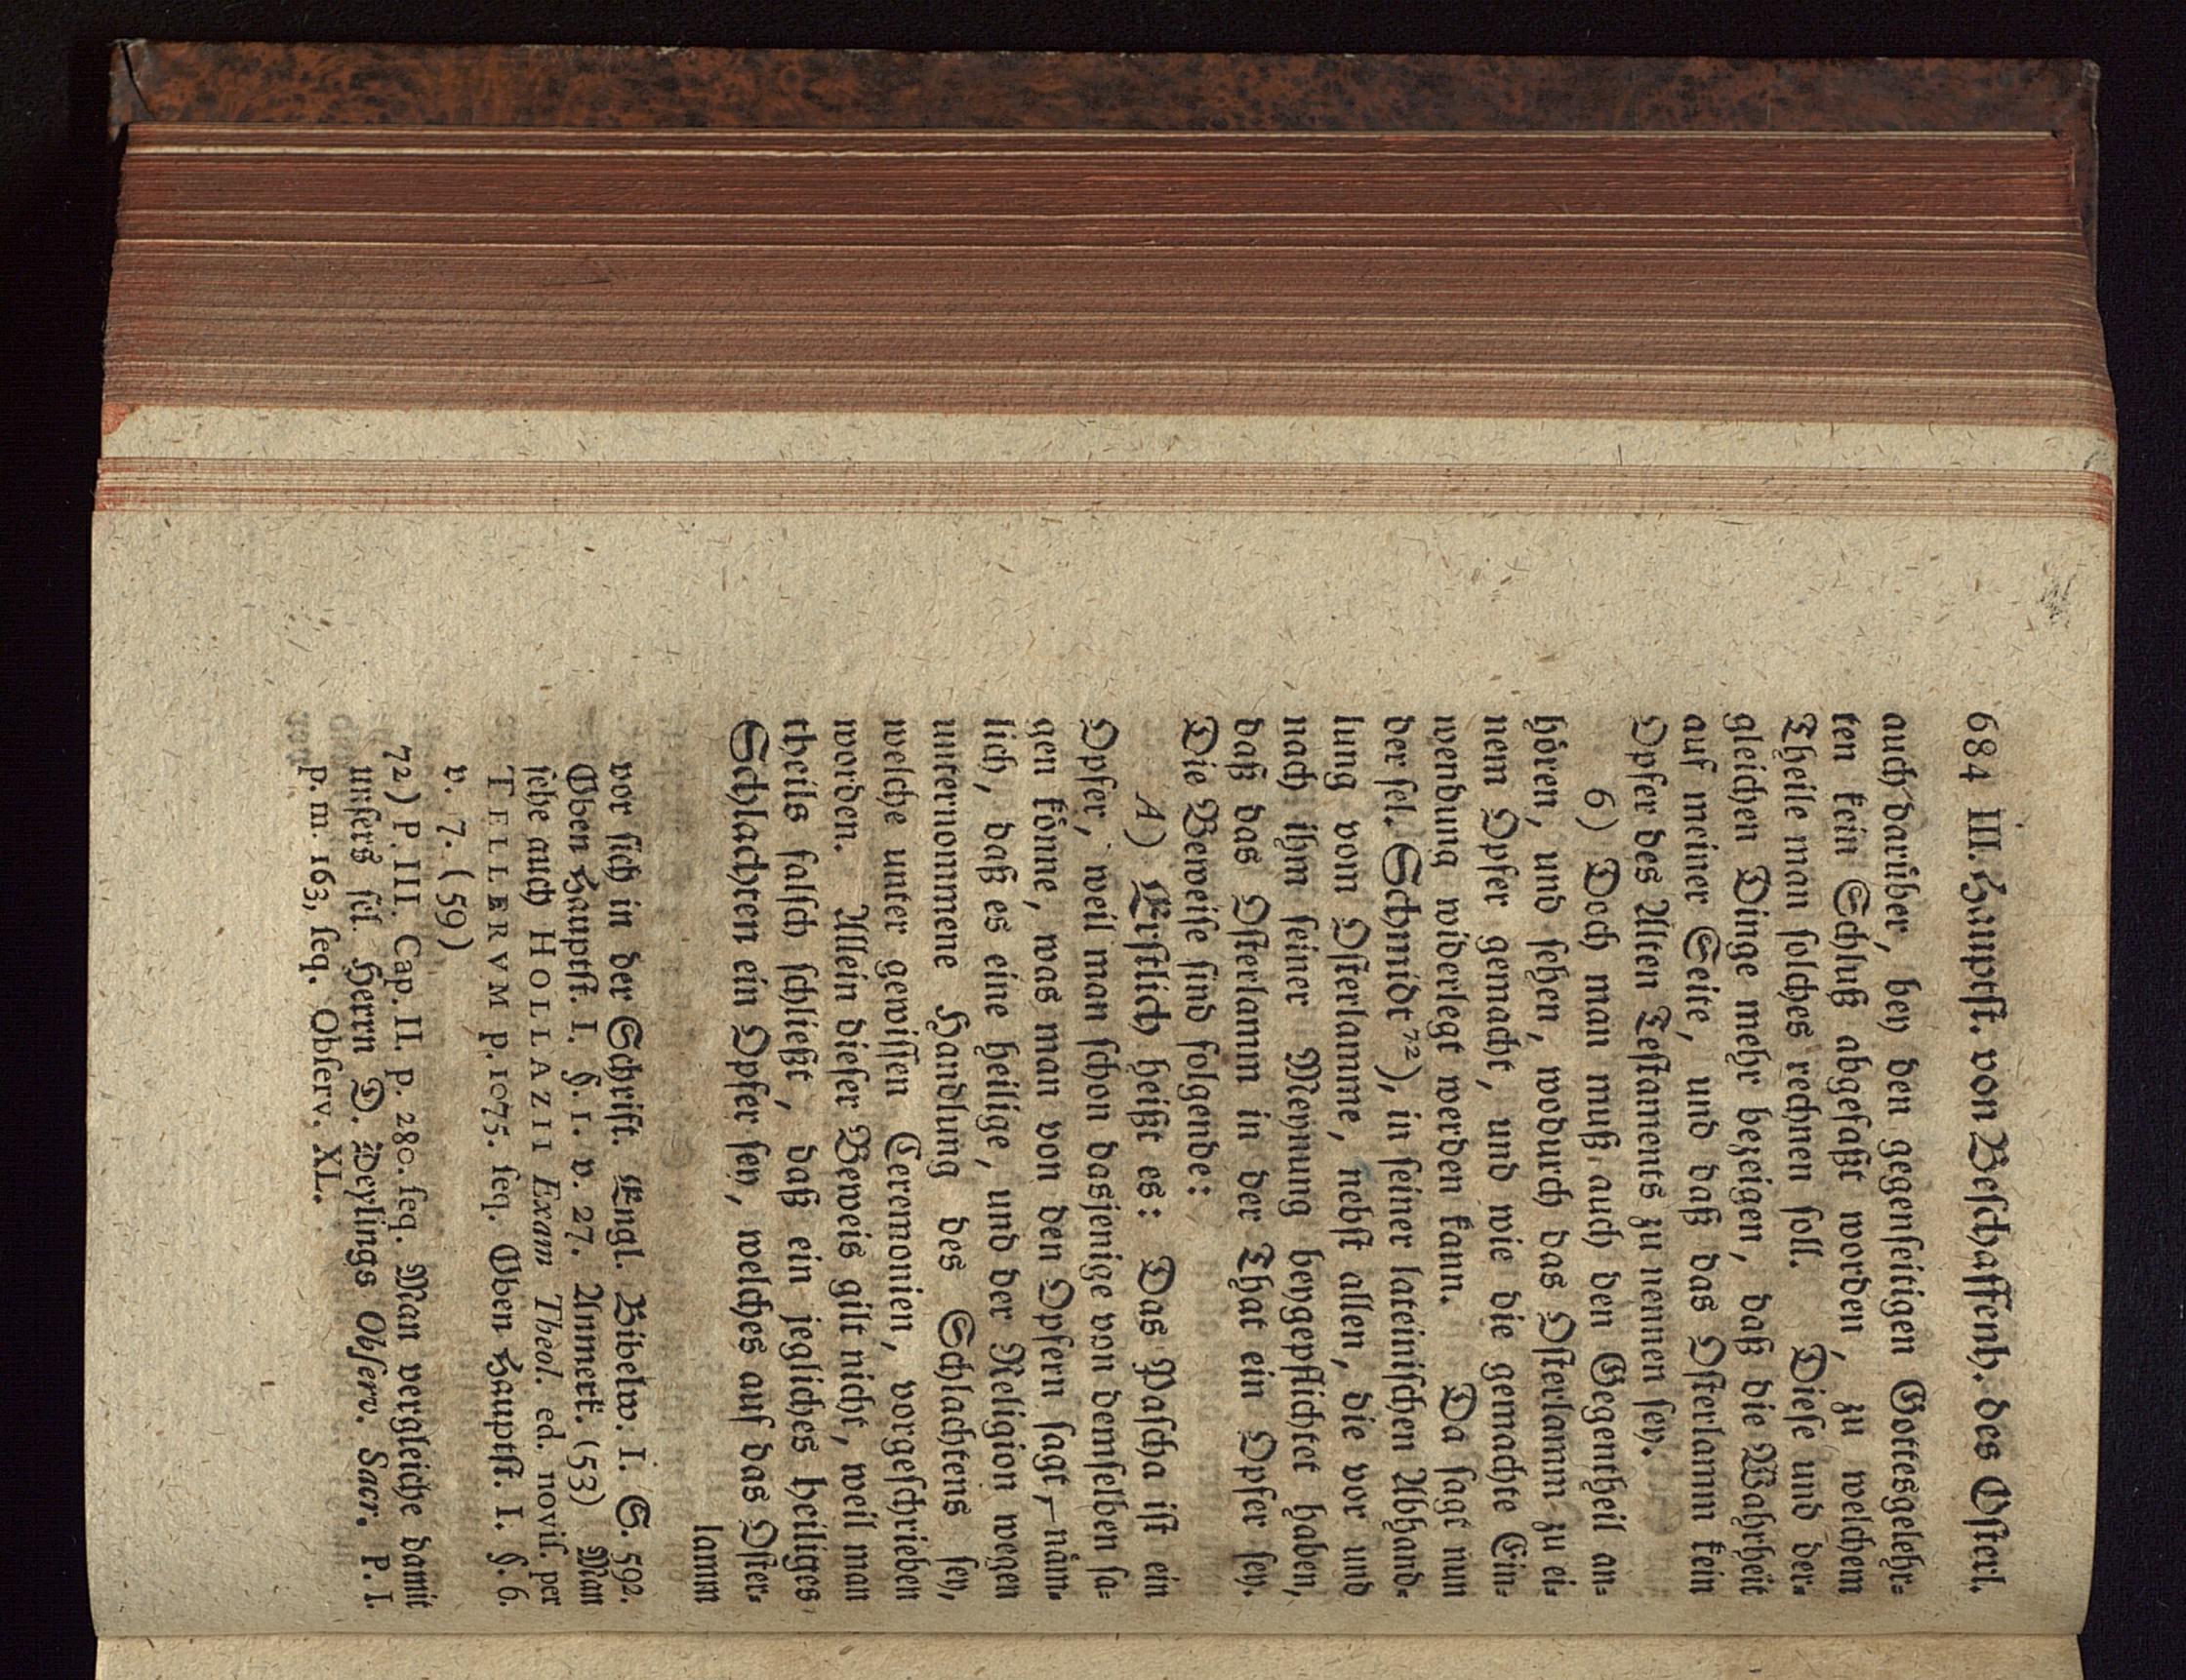 684 III. Hauptst. von Beschaffenh. des Osterl.
auch darüber, bey den gegenseitigen Gottesgelehr-
ten kein Schluß abgefaßt worden, zu welchem
Theile man solches rechnen soll. Diese und der-
gleichen Dinge mehr bezeigen, daß die Wahrheit
auf meiner Seite, und daß das Osterlamm kein
Opfer des Alten Testaments zu nennen sey.
6) Doch man muß auch den Gegentheil an-
hören, und sehen, wodurch das Osterlamm zu ei-
nem Opfer gemacht, und wie die gemachte Ein-
wendung widerlegt werden kann. Da sagt nun
der sel. Schmidt 72), in seiner lateinischen Abhand-
lung vom Osterlamme, nebst allen, die vor und
nach ihm seiner Meynung beygepflichtet haben,
daß das Osterlamm in der That ein Opfer sey.
Die Beweise sind folgende:
A) Erstlich heißt es: Das Pascha ist ein
Opfer, weil man schon dasjenige von demselben sa-
gen könne, was man von den Opfern sagt, näm-
lich, daß es eine heilige, und der Religion wegen
unternommene Handlung des Schlachtens sey,
welche unter gewissen Ceremonien, vorgeschrieben
worden. Allein dieser Beweis gilt nicht, weil man
theils falsch schließt, daß ein jegliches heiliges
Schlachten ein Opfer sey, welches auf das Oster-
lamm
vor sich in der Schrift. Engl. Bibelw. I. S. 592.
Oben Hauptst. I. §. 1. v. 27. Anmerk. (53) Man
sehe auch HOLLAZII Exam Theol. ed. novis. per
TELLERVM p. 1075. seq. Oben Hauptst. I. §. 6.
v. 7. (59)
72) P. III. Cap. II. p. 280. seq. Man vergleiche damit
unsers sel. Herrn D. Deylings Observ. Sacr. P. I.
p. m. 163, seq. Observ. XL.